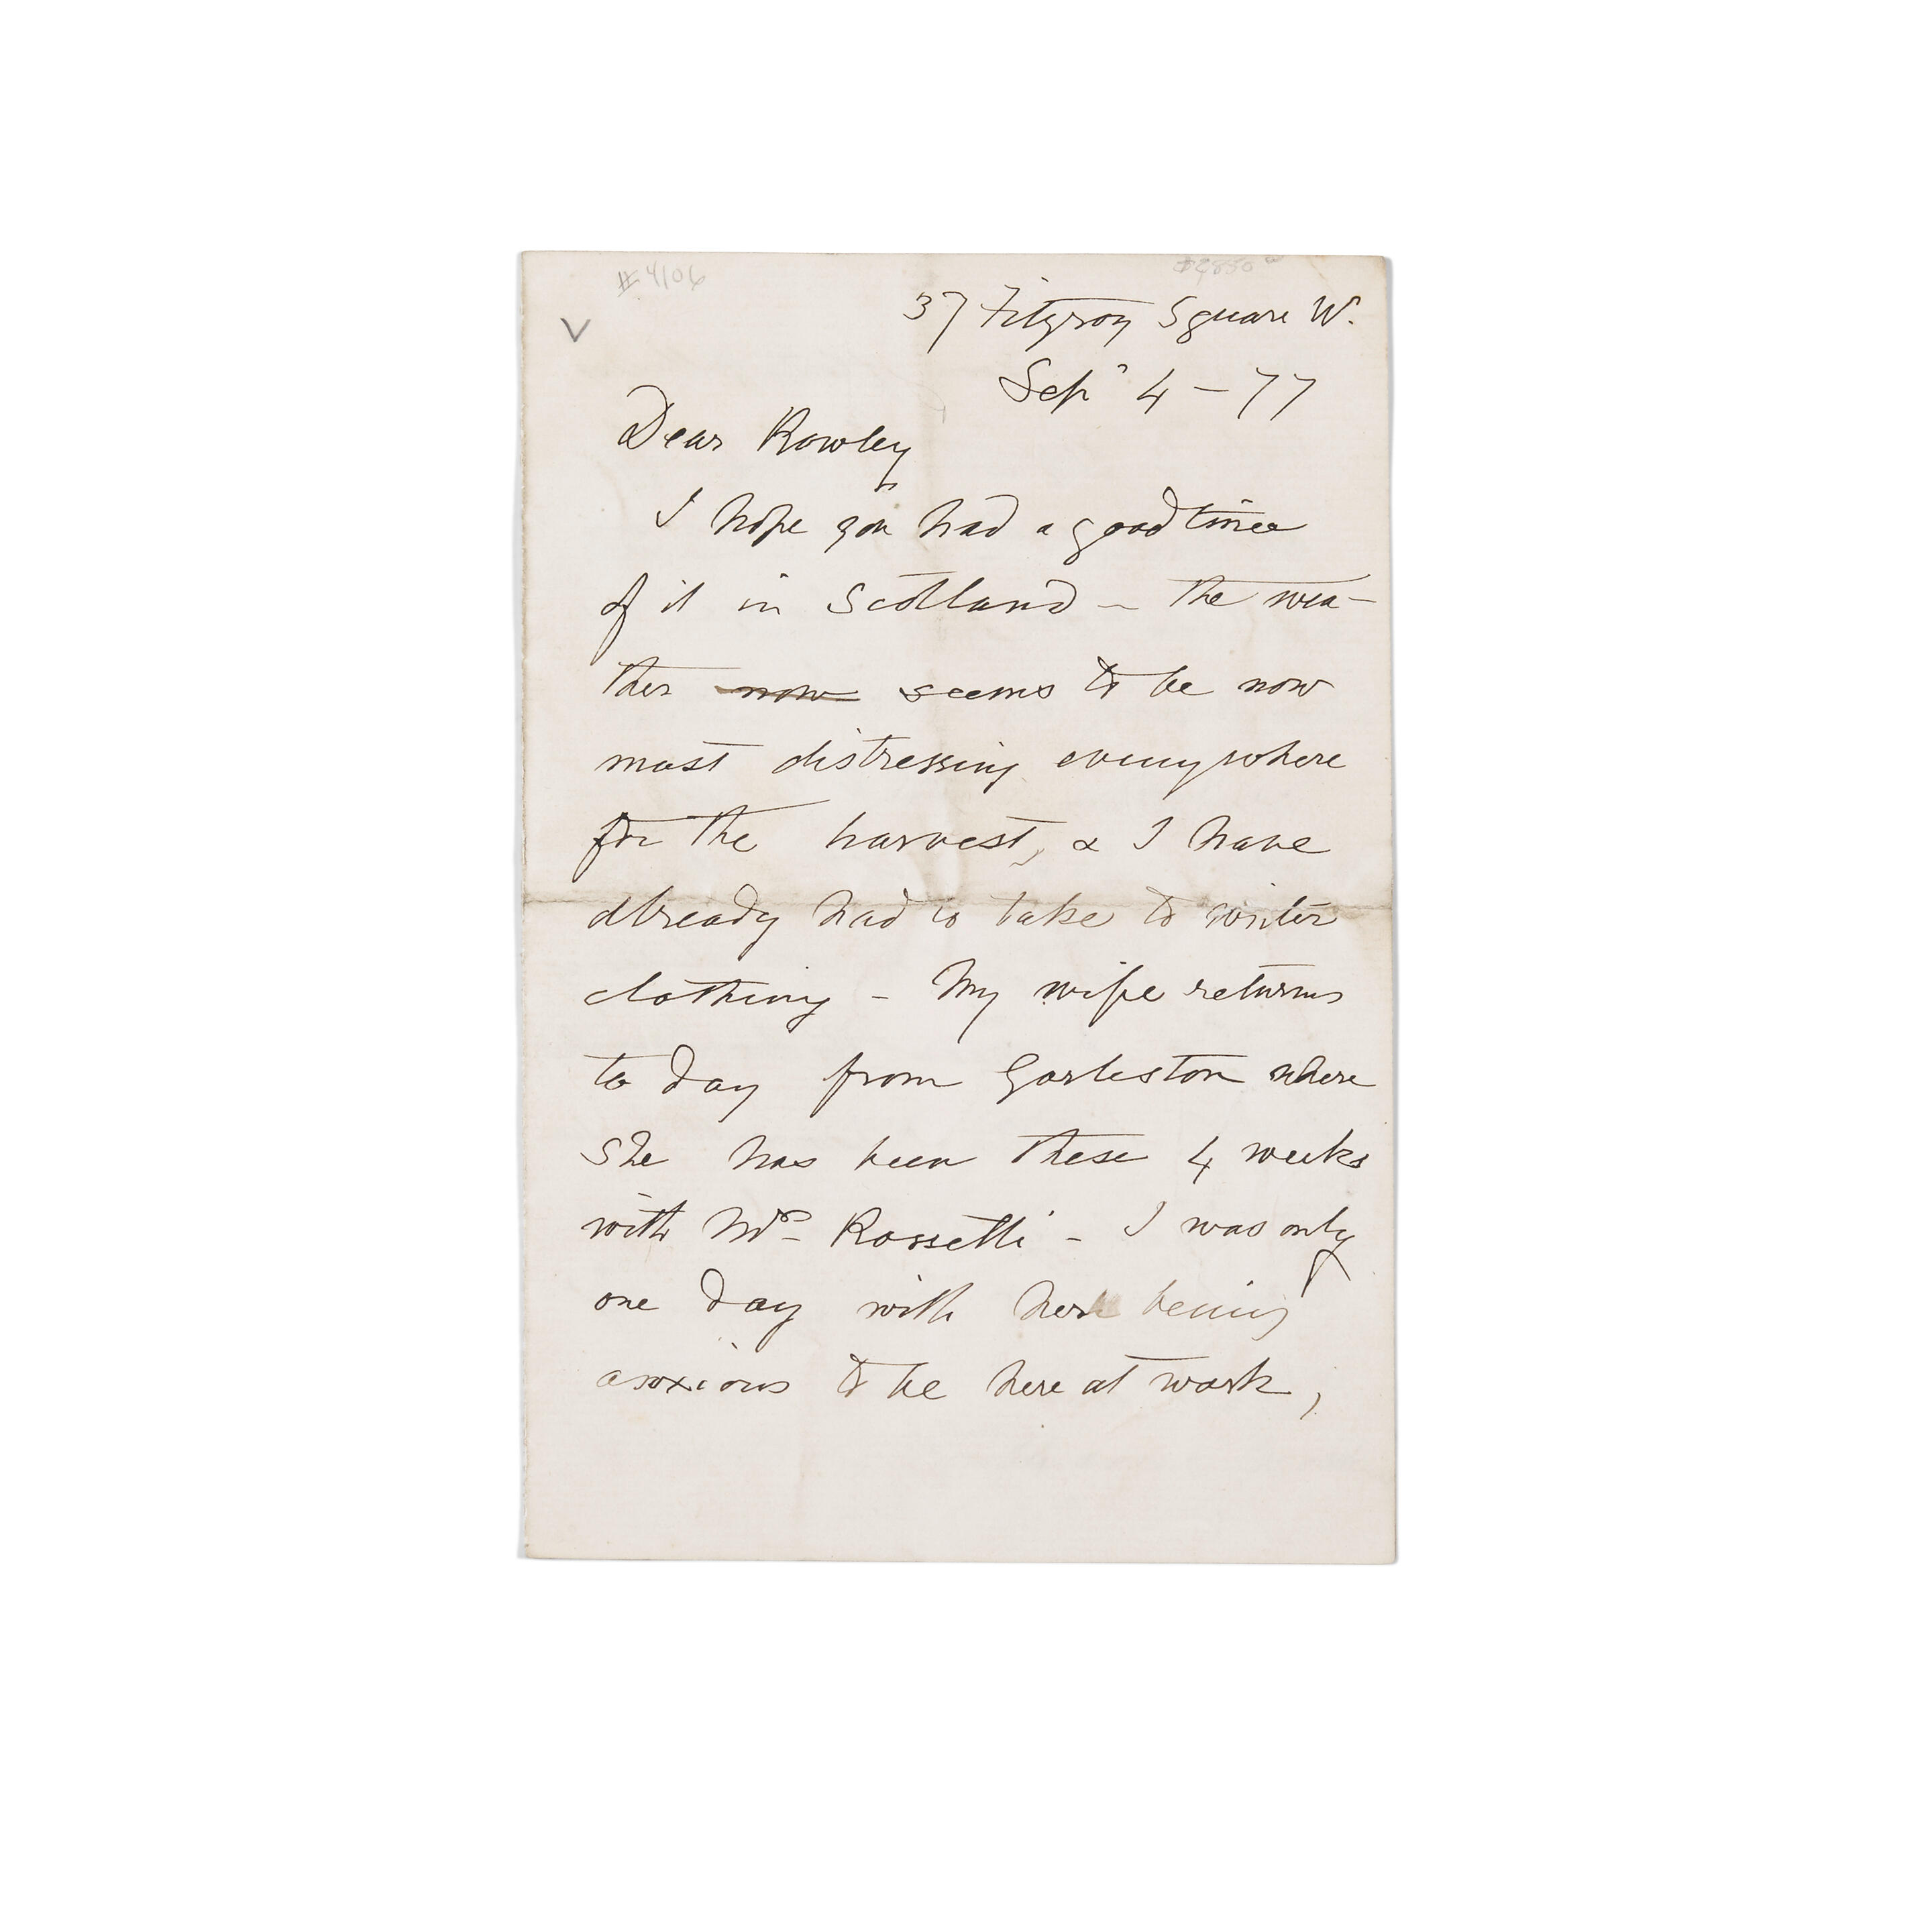 #4106
37 Fitzroy Square W.
Sep' 4 - 77
V
Dear Rowley
I hope you had a good time
of it in Scotland - the wea-
ther now seems to be now
most distressing everywhere
for the harvest, & I have
already had to take to winter
clothing - My wife returns
to day from Gorleston where
She has been these 4 weeks
with Mrs Rossetti - I was only
one day with her being
anxious to be here at work,